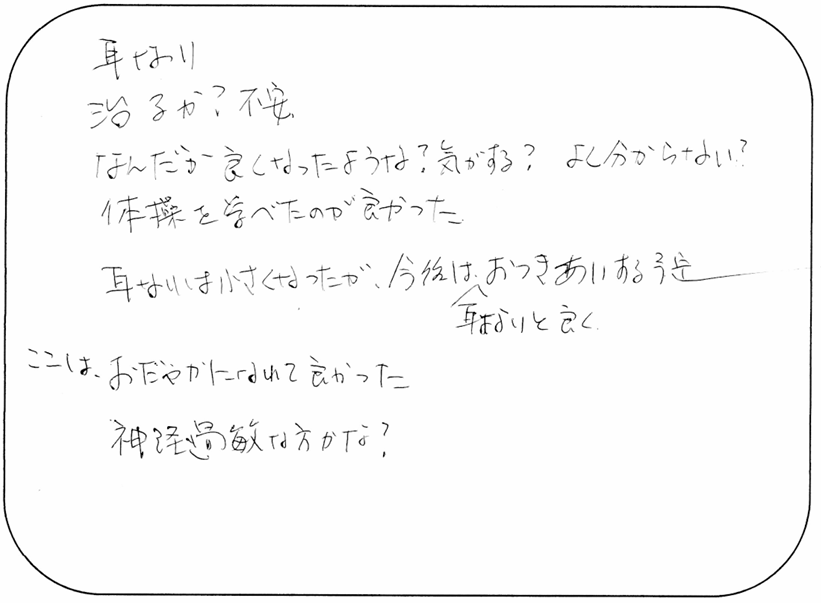 耳なり
治るか?不安
なんだか良くなったような?気がする? よく分からない?
体操を学べたのが良かった
耳なりは小さくなったが、今後は、おつきあいする予定
耳なりと良く
ここは、おだやかになれて良かった
神経過敏な方かな?